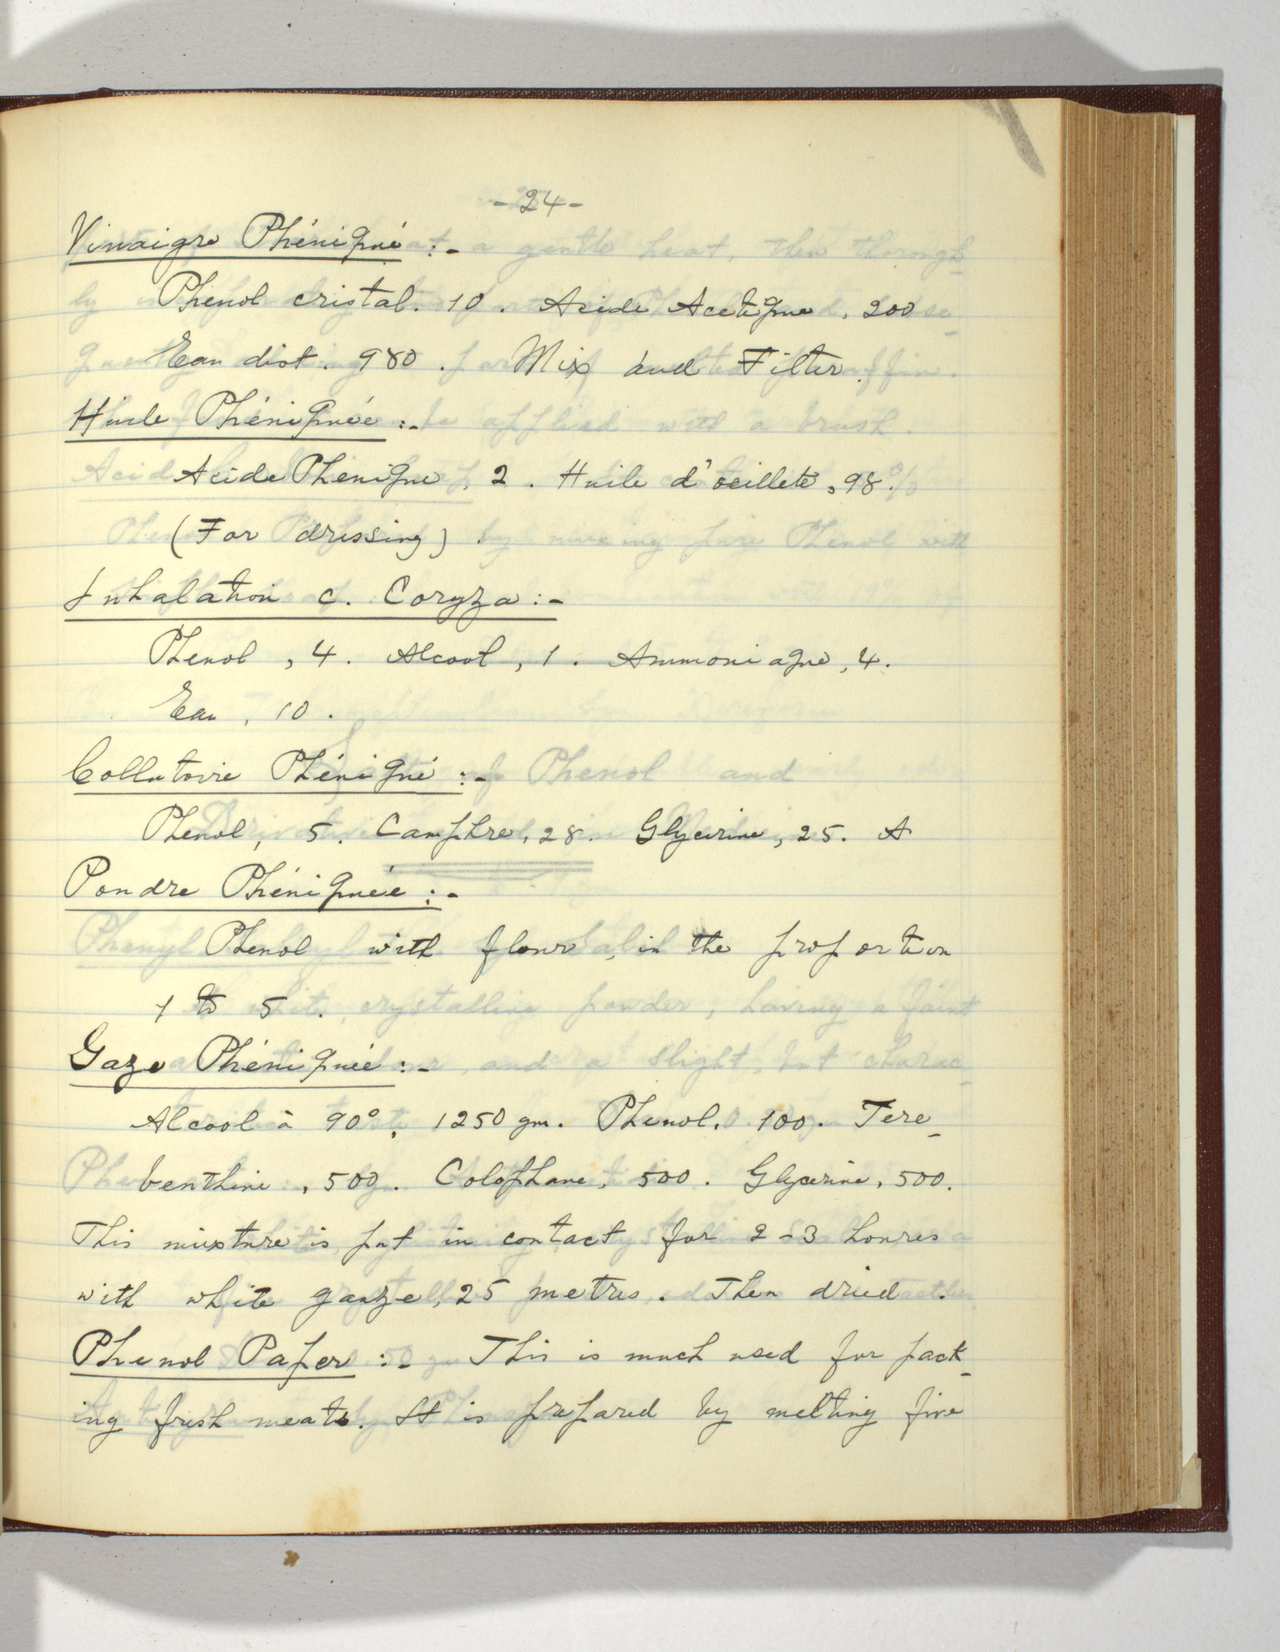 -24-
Vinaigre Phéniqué :-
Phenol cristal. 10. Acide Acetique, 200
Eau dist. 980. Mix and Filter.
Huile Phéniquée :-
Acide Phenique, 2. Huile d'oeillete, 98.
(For dressing)
Inhalation c. Coryza :-
Phenol, 4. Alcool, 1. Ammoniaque, 4.
Eau, 10.
Collutoire Phéniqué :-
Phenol, 5. Camphre, 28. Glycerine, 25. A
Poudre Phéniquée :-
Phenol with flour, in the proportion
1 to 5.
Gaze Phéniquée :-
Alcool à 90°, 1250 gm. Phenol. 100. Tere-
benthine, 500. Colophane, 500. Glycerine, 500.
This mixture is put in contact for 2-3 houres
with white gauze, 25 metres. Then dried.
Phenol Paper :- This is much used for pack-
ing fresh meats. It is prepared by melting five